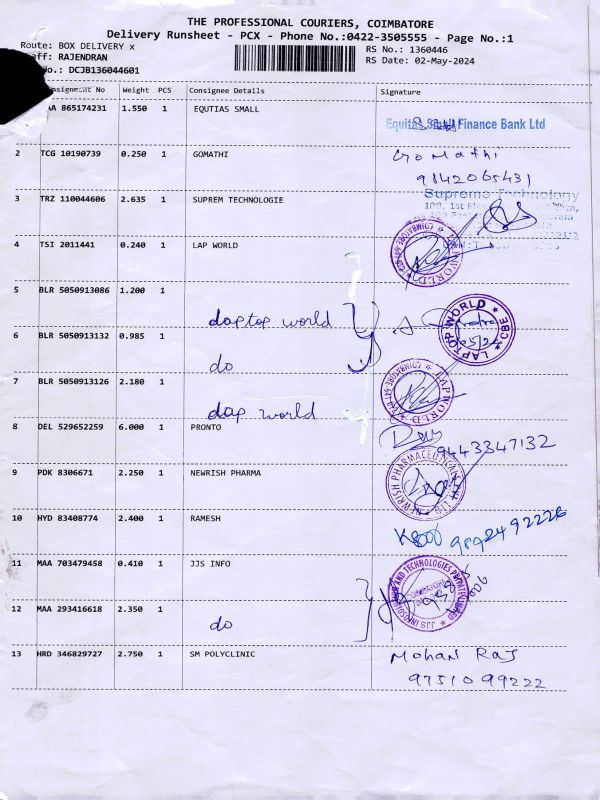 THE PROFESSIONAL COURIERS, COIMBATORE
Delivery Runsheet - PCX - Phone No.:0422-3505555 - Page No.:1
Route: BOX DELIVERY x
RS No.: 1360446
RAJENDRAN
RS Date: 02-May-2024
No.: DCJB136044601
Consignment No Weight PCS Consignee Details Signature
MAA 865174231 1.550 1 EQUTIAS SMALL
Equitas Small Finance Bank Ltd
2 TCG 10190739 0.250 1 GOMATHI Gomathi
9842065431
3 TRZ 110044606 2.635 1 SUPREM TECHNOLOGIE Supreme Technology
4 TSI 2011441 0.240 1 LAP WORLD
LAPWORLD
5 BLR 5050913086 1.200 1
Laptop world
LAPTOP WORLD CBE
6 BLR 5050913132 0.985 1
do
7 BLR 5050913126 2.180 1
Lap world
LAPWORLD
8 DEL 529652259 6.000 1 PRONTO
9443347132
9 PDK 8306671 2.250 1 NEWRISH PHARMA
NEWRISH PHARMACEUTICAL
10 HYD 83408774 2.400 1 RAMESH
9892492226
11 MAA 703479458 0.410 1 JJS INFO
JJS INFOSOLUTION AND TECHNOLOGIES PRIVATE LIMITED
12 MAA 293416618 2.350 1
do
13 HRD 346829727 2.750 1 SM POLYCLINIC Mohan Raj
9751099222